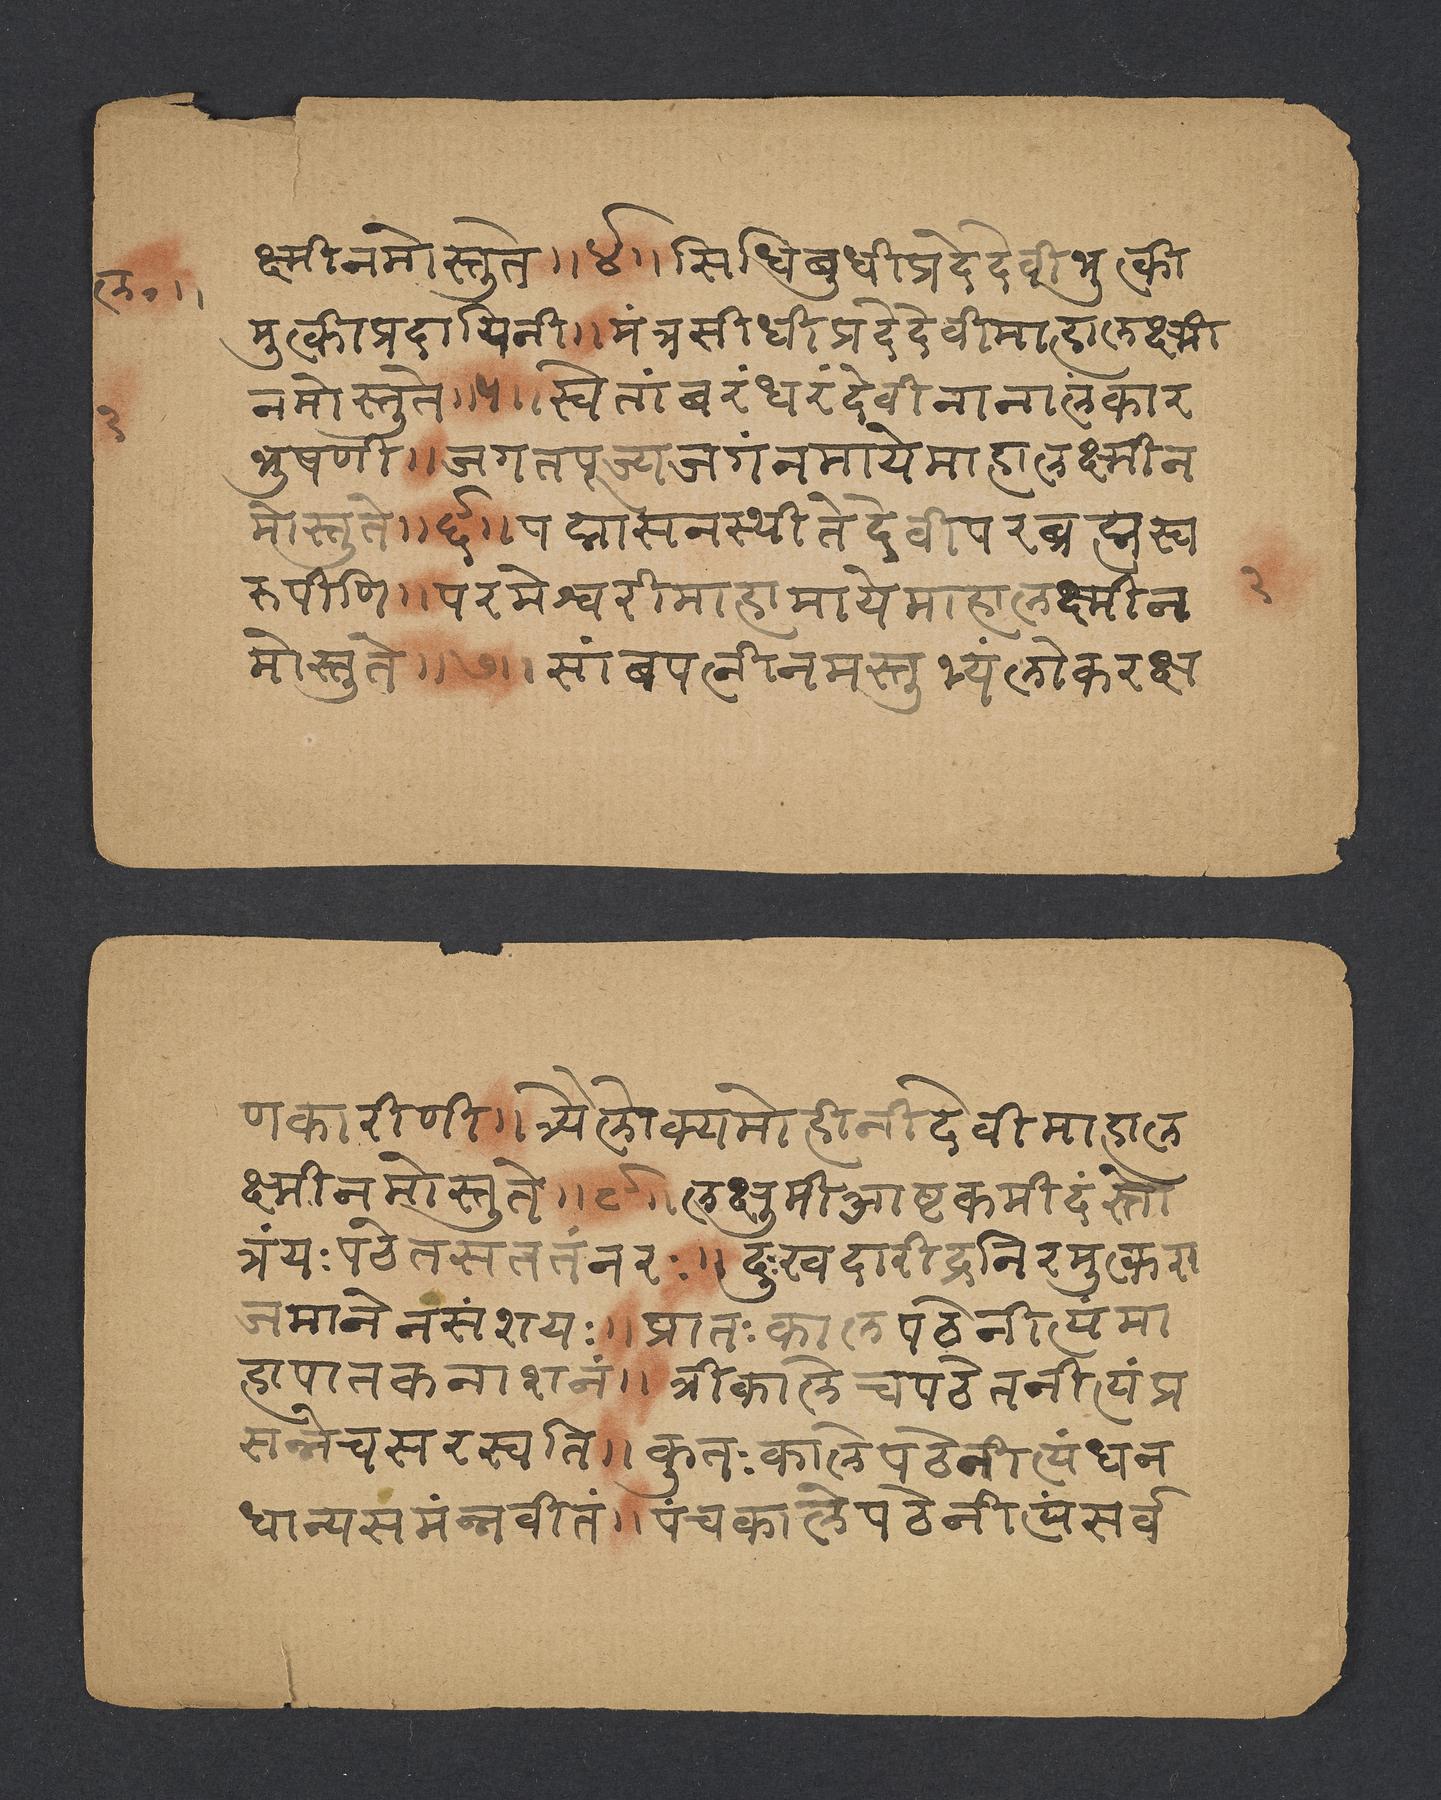 क्ष्मीनमोस्तुते॥४॥सिधिबुधीप्रदेदेवीभुक्ती
ल॰॥
मुक्तीप्रदायिनी॥मंत्रसीधीप्रदेदेवीमाहालक्ष्मी
नमोस्तुते॥५॥स्वेतांबरंधरंदेवीनानालंकार
२
भुषणी॥जगतपूज्यजगंनमायेमाहालक्ष्मीन
मोस्तुते॥६॥पद्मासनस्थीतेदेवीपरब्रह्मस्व
२
रुपीणि॥परमेश्वरीमाहामायेमाहालक्ष्मीन
मोस्तुते॥७॥सांबपत्नीनमस्तुभ्यंलोकरक्ष
णकारीणी॥त्र्येलोक्यमोहीनीदेवीमाहाल
क्ष्मीनमोस्तुते॥८॥लक्षुमीआष्टकमीदंस्तो
त्रंयःपठेतसततंनरः॥दुःखदारीद्रनिरमुक्तेरा
जमानेनसंशयः॥प्रातःकालपठेनीत्यंमा
हापातकनाशनं॥त्रीकालेचपठेतनीत्यंप्र
सन्नेचसरस्वति॥कुतःकालेपठेनीत्यंधन
धान्यसमंन्नवीतं॥पंचकालेपठेनीत्यंसर्व